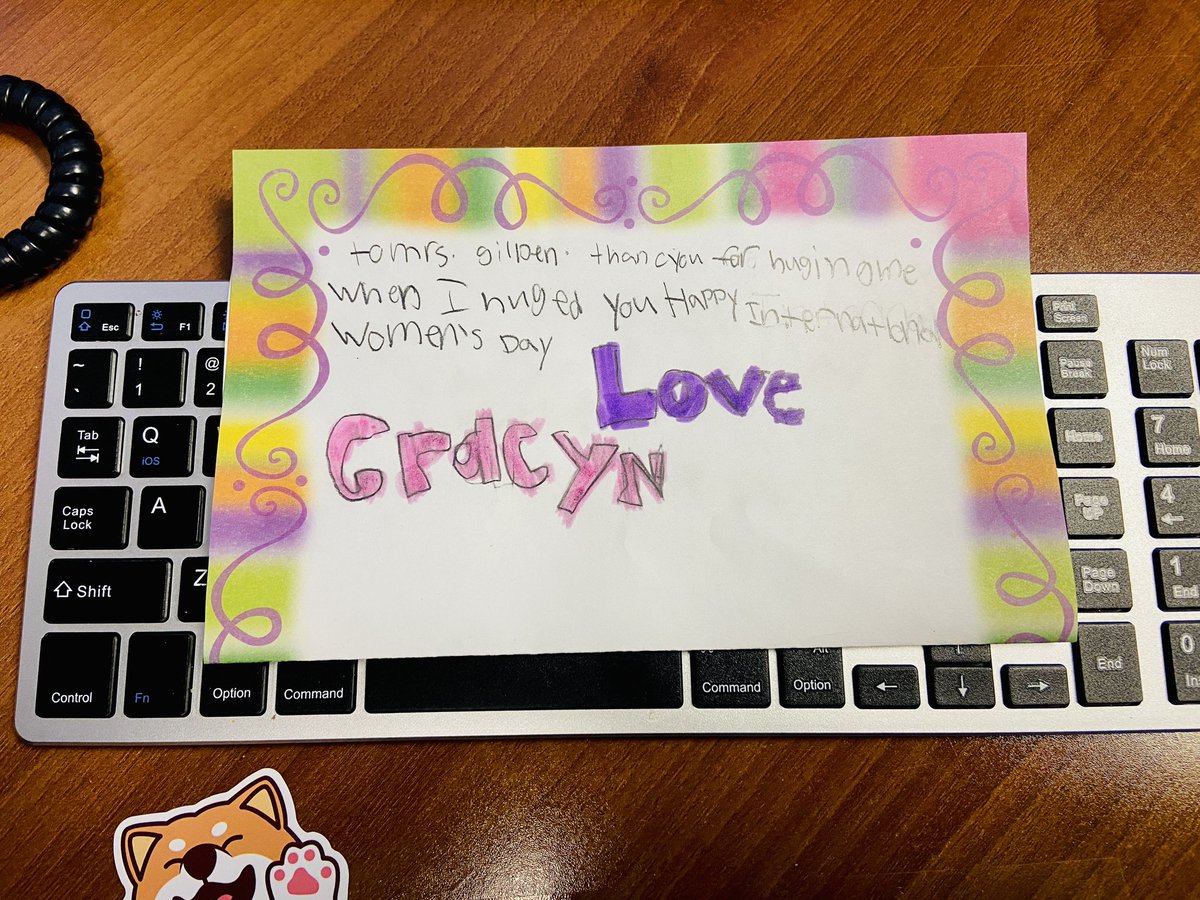 to mrs. gillpen. thancyou for huging me
when I huged you Happy International
Women's Day
Love
Gracyn
Esc
F1
~
`
!
1
@
2
Tab
Q
iOS
Caps
Lock
A
Shift
Z
Control
Fn
Option
Command
Command
Alt
Option
Print
Screen
Pause
Break
Num
Lock
Home
7
Home
Page
UP
4
Page
Down
1
End
End
0
Ins